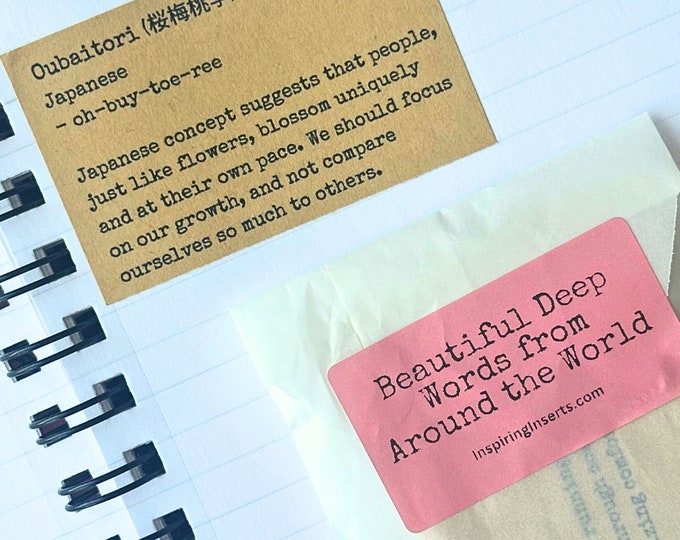 Oubaitori (桜梅桃李
Japanese
- oh-buy-toe-ree
Japanese concept suggests that people,
just like flowers, blossom uniquely
and at their own pace. We should focus
on our growth, and not compare
ourselves so much to others.
Beautiful Deep
Words from
Around the World
InspiringInserts.com